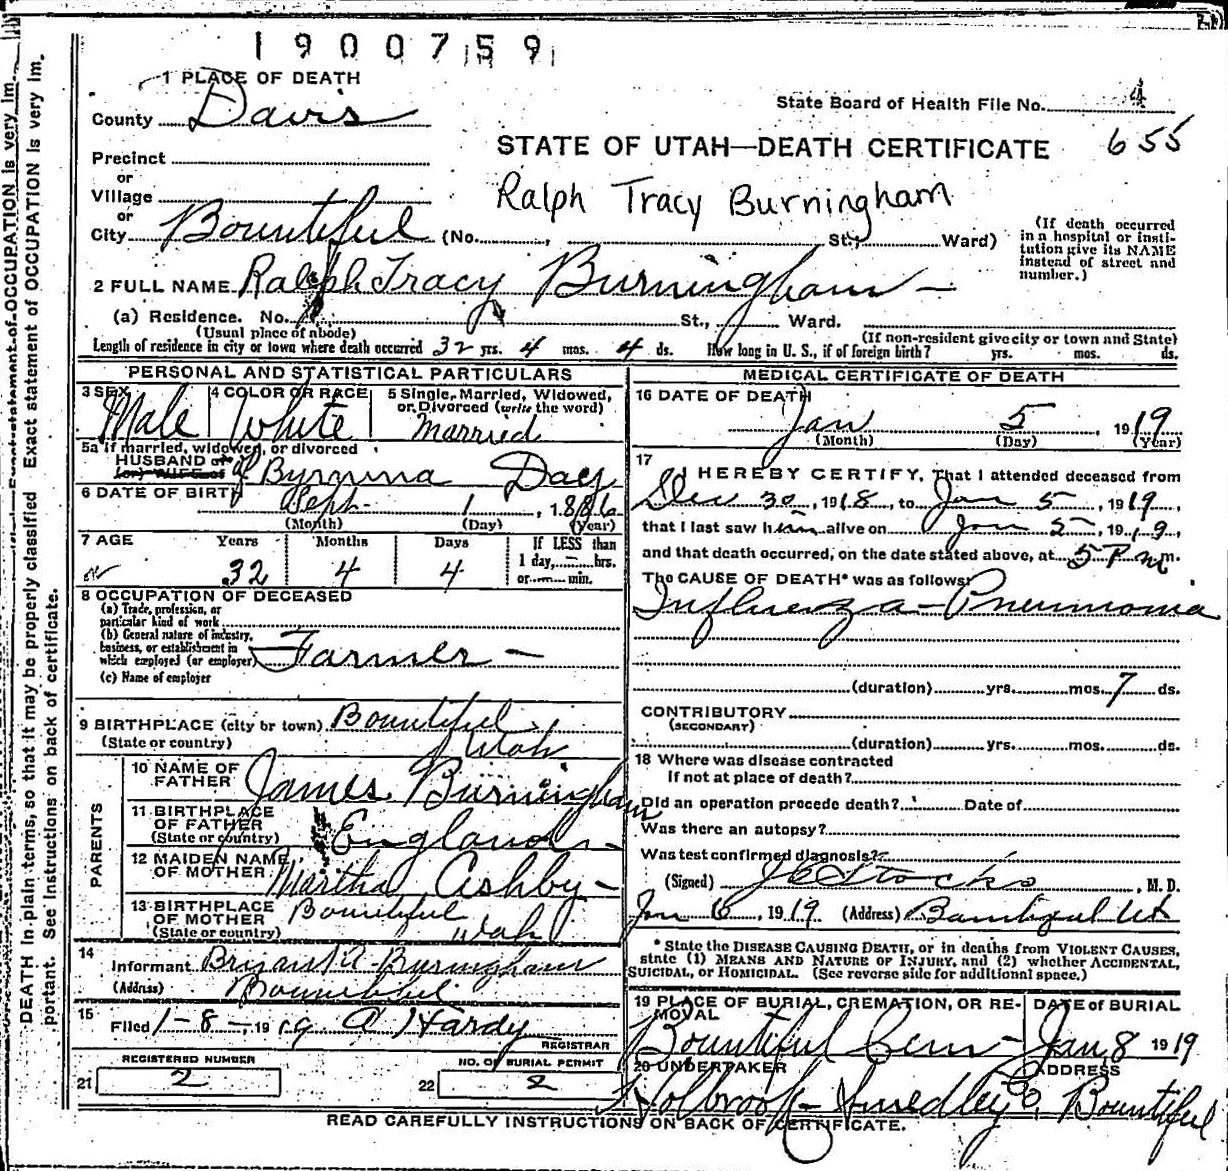 1900759
1 PLACE OF DEATH
County Davis
State Board of Health File No. 4
655
Precinct
or
Village
or
City Bountiful (No. , St.; Ward)
STATE OF UTAH—DEATH CERTIFICATE
Ralph Tracy Burningham
(If death occurred
in a hospital or insti-
tution give its NAME
instead of street and
number.)
2 FULL NAME Ralph Tracy Burningham —
(a) Residence. No. St., Ward.
(Usual place of abode) (If non-resident give city or town and State)
Length of residence in city or town where death occurred 32 yrs. 4 mos. 4 ds. How long in U. S., if of foreign birth? yrs. mos. ds.
PERSONAL AND STATISTICAL PARTICULARS
3 SEX Male
4 COLOR OR RACE White
5 Single, Married, Widowed,
or Divorced (write the word)
Married
5a If married, widowed, or divorced
HUSBAND of
(or) WIFE of
Day
6 DATE OF BIRTH Sept. 1, 1886
(Month) (Day) (Year)
7 AGE Years Months Days If LESS than
1 day, hrs.
or min.
32 4 4
8 OCCUPATION OF DECEASED
(a) Trade, profession, or
particular kind of work
(b) General nature of industry,
business, or establishment in
which employed (or employer) Farmer —
(c) Name of employer
9 BIRTHPLACE (city or town) Bountiful
(State or country) Utah
PARENTS
10 NAME OF
FATHER James Burningham
11 BIRTHPLACE
OF FATHER
(State or country) England —
12 MAIDEN NAME
OF MOTHER Martha Ashby —
13 BIRTHPLACE
OF MOTHER
(State or country) Bountiful
Utah
14
Informant Bryant A. Burningham
(Address) Bountiful
15
Filed 1-8-, 1919 A Hardy
REGISTRAR
REGISTERED NUMBER NO. OF BURIAL PERMIT
21 2 22 2
MEDICAL CERTIFICATE OF DEATH
16 DATE OF DEATH
Jan 5, 1919
(Month) (Day) (Year)
17
I HEREBY CERTIFY, That I attended deceased from
Dec 30, 1918, to Jan 5, 1919,
that I last saw him alive on Jan 5, 1919,
and that death occurred, on the date stated above, at 5 P m.
The CAUSE OF DEATH* was as follows:
Influenza - Pneumonia
(duration) yrs. mos. 7 ds.
CONTRIBUTORY
(SECONDARY)
(duration) yrs. mos. ds.
18 Where was disease contracted
if not at place of death?
Did an operation precede death? Date of
Was there an autopsy?
Was test confirmed diagnosis?
(Signed) J C Stocks, M. D.
Jan 6, 1919 (Address) Bountiful Ut
* State the DISEASE CAUSING DEATH, or in deaths from VIOLENT CAUSES,
state (1) MEANS AND NATURE OF INJURY, and (2) whether ACCIDENTAL,
SUICIDAL, or HOMICIDAL. (See reverse side for additional space.)
19 PLACE OF BURIAL, CREMATION, OR RE-
MOVAL
Bountiful Cem —
DATE of BURIAL
Jan 8 1919
20 UNDERTAKER ADDRESS
Holbrook - Smedley Co, Bountiful
READ CAREFULLY INSTRUCTIONS ON BACK OF CERTIFICATE.
DEATH in plain terms, so that it may be properly classified. Exact statement of OCCUPATION is very im-
portant. See instructions on back of certificate.